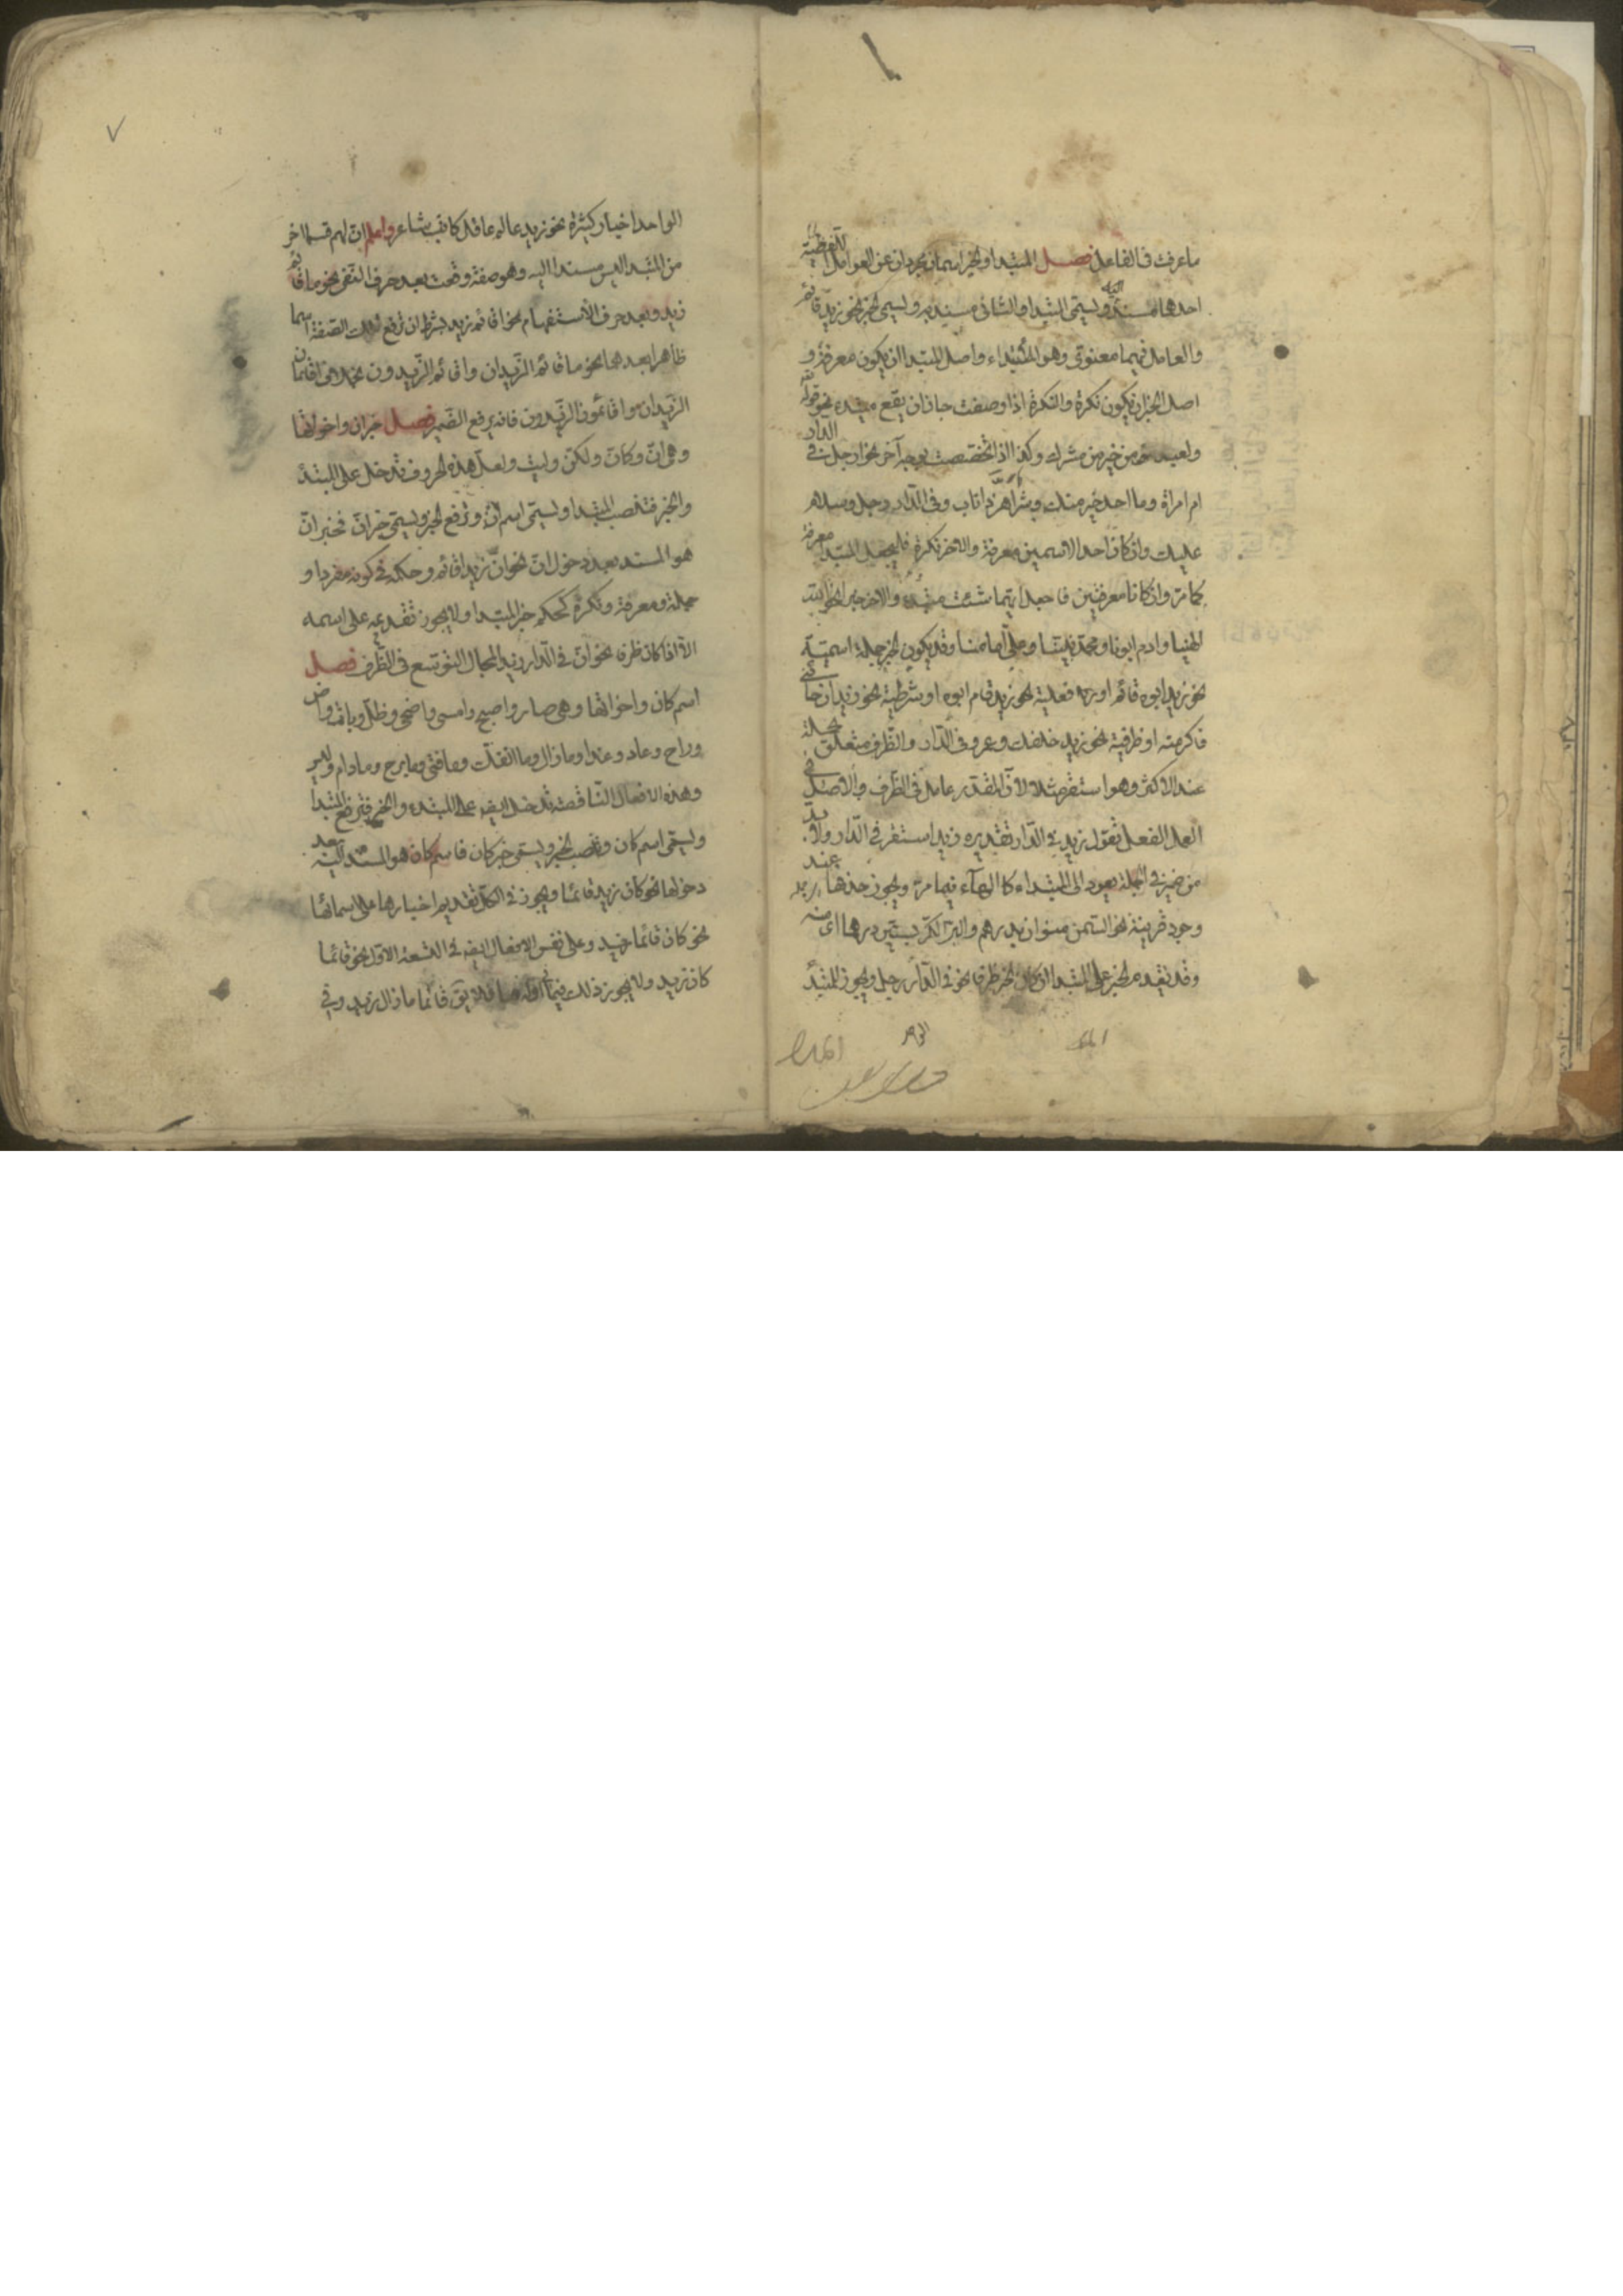 ما عرفت فى الفاعل فصل المبتدا والخبر اسمان مجردان عن العوامل اللفظية
احدهما مسند اليه ويسمى المبتدا والثانى مسند به ويسمى الخبر نحو زيد قائم
والعامل فيهما معنوى وهو الابتداء واصل المبتدا ان يكون معرفة و
اصل الخبر ان يكون نكرة والنكرة اذا وصفت جاز ان يقع مبتدء نحو قوله تع
ولعبد مؤمن خير من مشرك وكذا اذا تخصصت بوجه آخر نحو ارجل فى الدار
ام امراة وما احد خير منك وشر اهر ذا ناب وفى الدار رجل وسلام
عليك وان كان احد الاسمين معرفة والاخر نكرة فاجعل المبتدا معرفة
كما مر وان كانا معرفتين فاجعل ايهما شئت مبتدء والاخر خبرا نحو الله
الهنا وادم ابونا ومحمد نبينا وعلى امامنا وقد يكون الخبر جملة اسمية
نحو زيد ابوه قائم او فعلية نحو زيد قام ابوه او شرطية نحو زيد ان جائنى
فاكرمته او ظرفية نحو زيد خلفك وعمرو فى الدار والظرف متعلق بجملة
عند الاكثر وهو استقر مثلا لان المقدر عامل فى الظرف والاصل فى
العمل الفعل تقول زيد فى الدار تقديره زيد استقر فى الدار ولا بد
من ضمير فى الجملة يعود الى المبتداء كالهآء فيما مر ويجوز حذفها عند
وجود قرينة نحو السمن منوان بدرهم والبر الكر بستين درهما اى منه
وقد يتقدم الخبر على المبتدا ان كان الخبر ظرفا نحو فى الدار رجل ويجوز للمبتدأ
الواحد اخبار كثيرة نحو زيد عالم عاقل كاتب شاعر واعلم ان لهم قسما اخر
من المبتدا ليس مسندا اليه وهو صفة وقعت بعد حرف النفى نحو ما قائم
زيد وبعد حرف الاستفهام نحو اقائم زيد بشرط ان ترفع تلك الصفة اسما
ظاهرا بعدهما نحو ما قائم الزيدان واقائم الزيدون بخلاف اقائمان
الزيدان واقائمون الزيدون فانه يرفع الضمير فصل خبر ان واخواتها
وهى ان وكان ولكن وليت ولعل هذه الحروف تدخل على المبتدأ
والخبر فتنصب المبتدا ويسمى اسم ان وترفع الخبر ويسمى خبر ان فخبر ان
هو المسند بعد دخول ان نحو ان زيدا قائم وحكمه فى كونه مفردا و
جملة ومعرفة ونكرة كحكم خبر المبتدا ولا يجوز تقديمه على اسمه
الا اذا كان ظرفا نحو ان فى الدار زيدا لمجال التوسع فى الظرف فصل
اسم كان واخواتها وهى صار واصبح وامسى واضحى وظل وبات واض
وراح وعاد وغدا وما زال وما انفك وما فتى وما برح وما دام وليس
وهذه الافعال الناقصة تدخل ايضه على المبتدء والخبر فترفع المبتدا
ويسمى اسم كان وتنصب الخبر ويسمى خبر كان فاسم كان هو المسند اليه بعد
دخولها نحو كان زيد قائما ويجوز فى الكل تقديم اخبارها على اسمائها
نحو كان قائما زيد وعلى نفس الافعال ايضه فى التسعة الاول نحو قائما
كان زيد ولا يجوز ذلك فيما اوله ما فلا يقق قائما ما زال زيد وفى